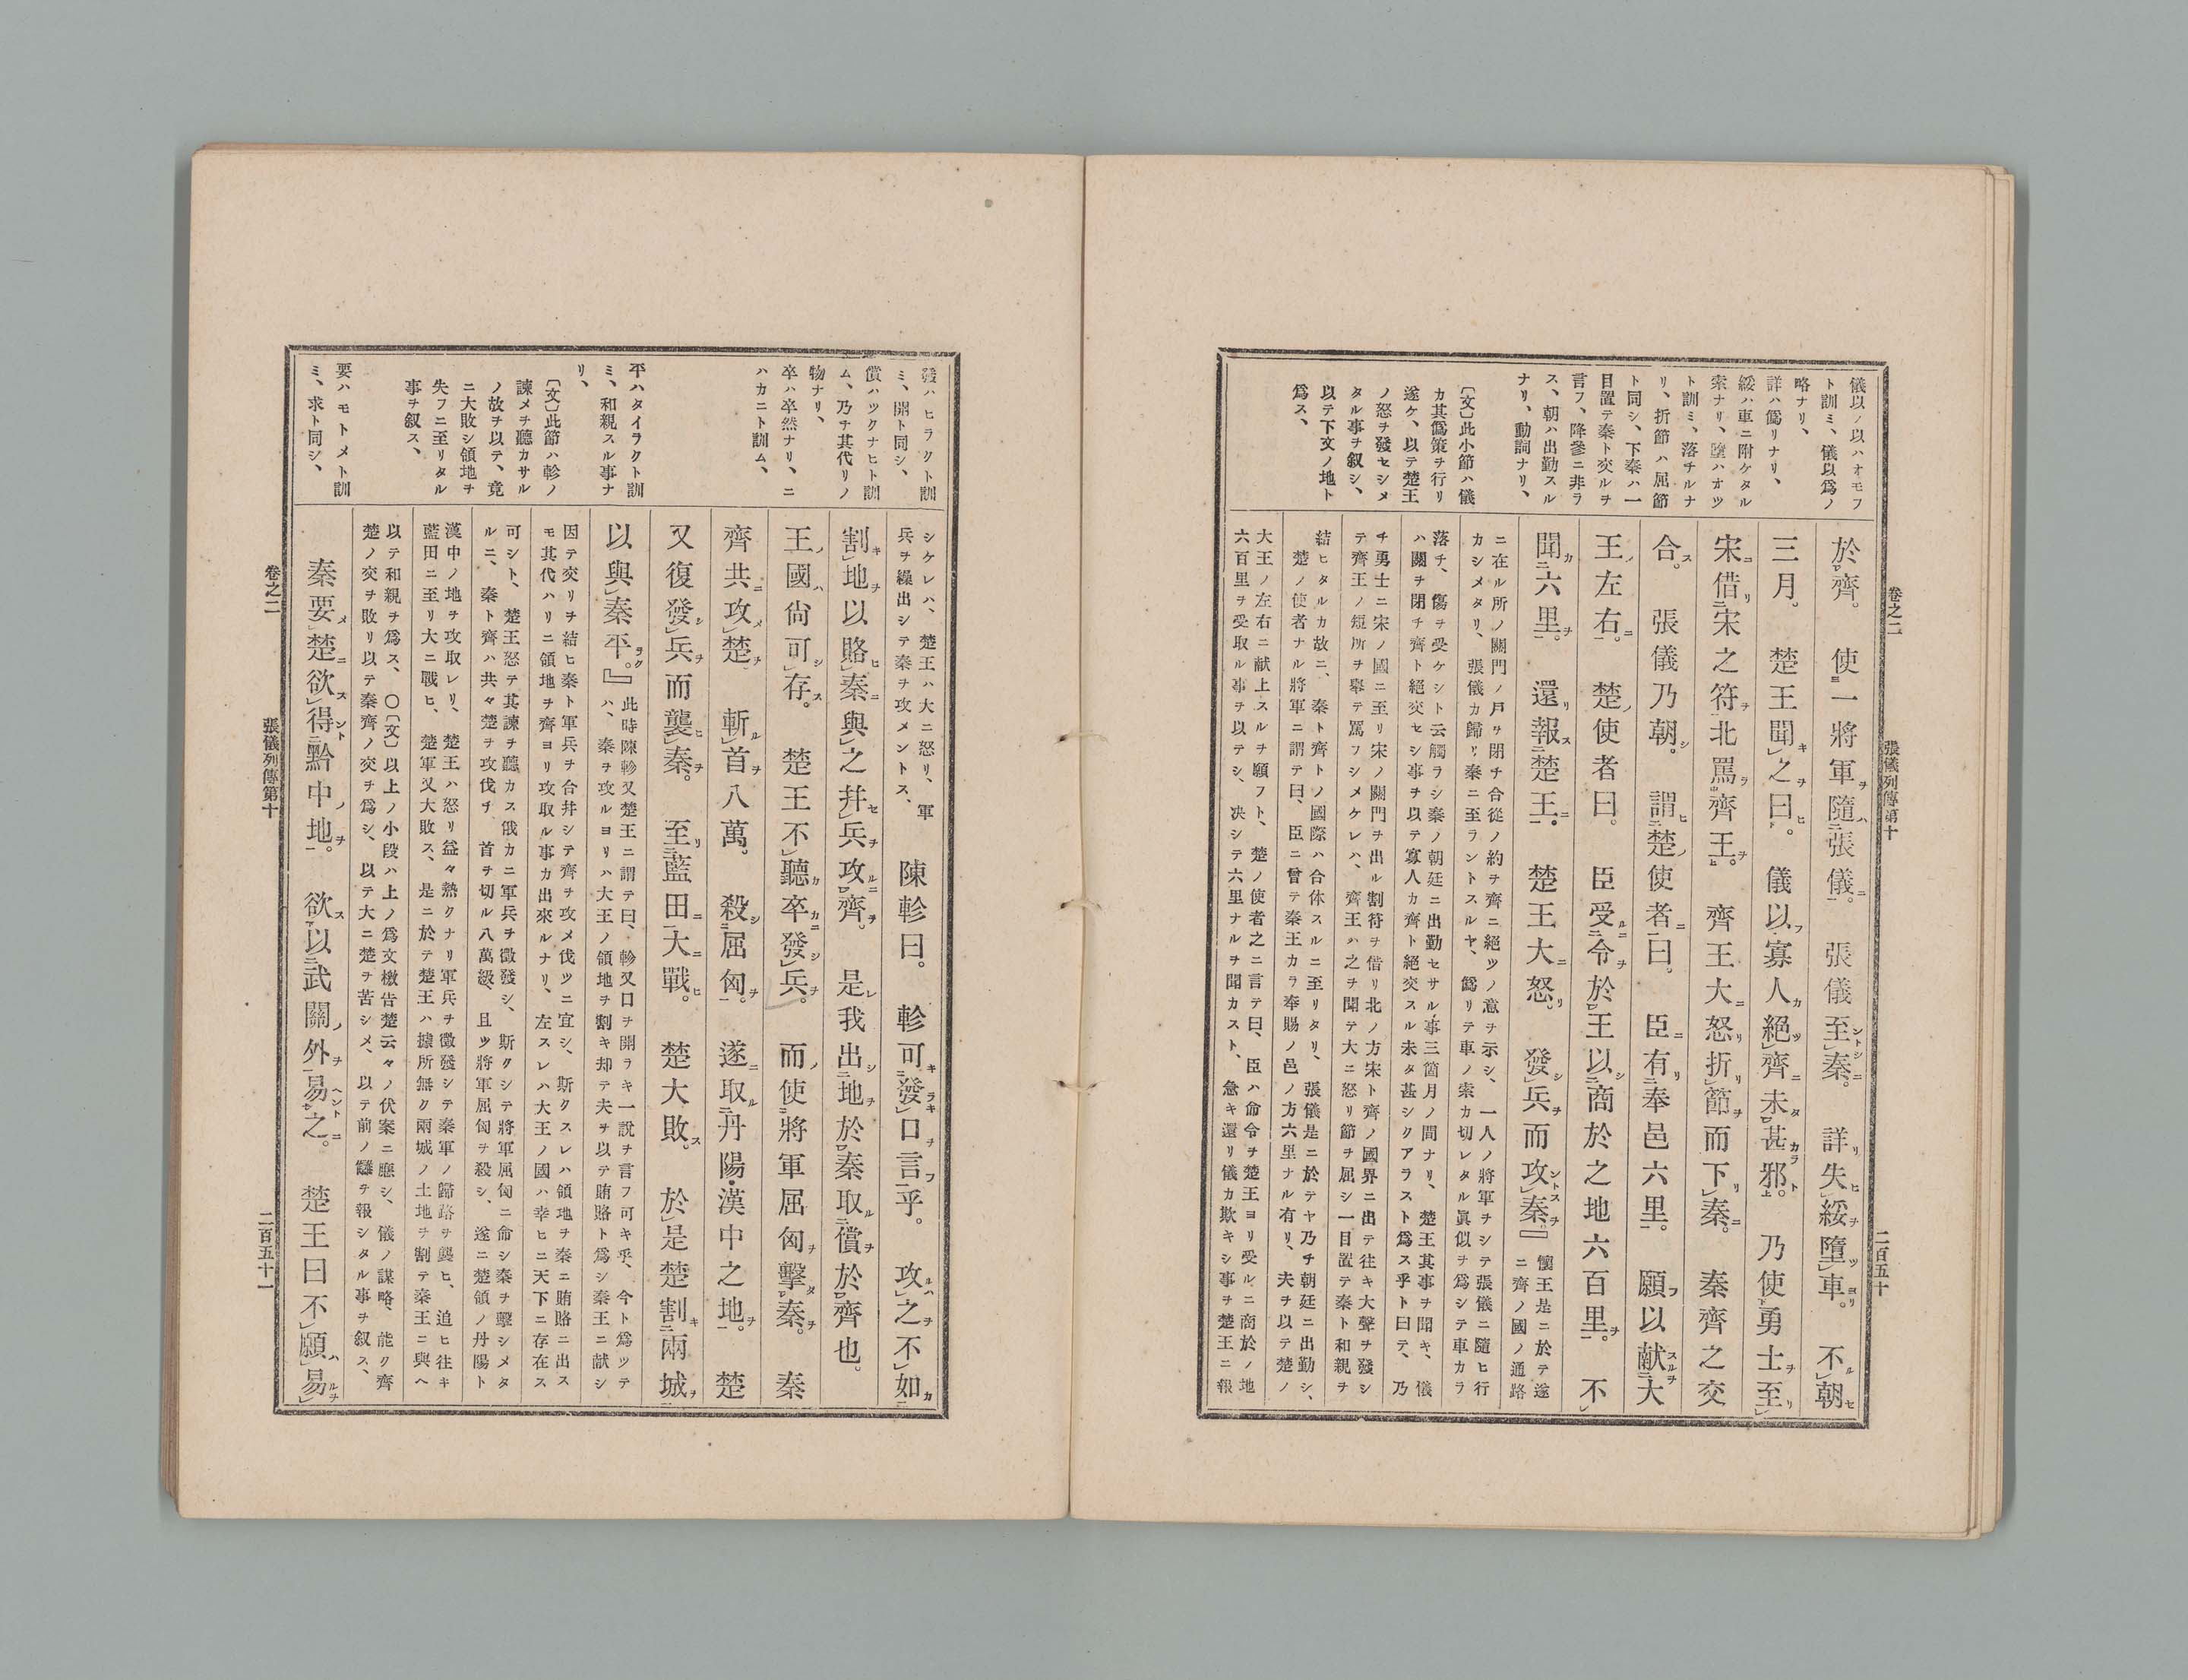 卷之二
張儀列傳第十
二百五十
儀以ノ以ハオモフ
ト訓ミ、儀以爲ノ
略ナリ、
詳ハ僞リナリ、
綏ハ車ニ附ケタル
索ナリ、墮ハオツ
ト訓ミ、落チルナ
リ、折節ハ屈節
ト同シ、下秦ハ一
目置テ秦ト交ルヲ
言フ、降參ニ非ラ
ス、朝ハ出勤スル
ナリ、動詞ナリ、
〔文〕此小節ハ儀
カ其僞策ヲ行リ
遂ケ、以テ楚王
ノ怒ヲ發セシメ
タル事ヲ叙シ、
以テ下文ノ地ト
爲ス、
於齊。使一將軍隨張儀。張儀至秦。詳失綏墮車。不朝
三月。楚王聞之曰。儀以寡人絕齊未甚邪。乃使勇士至
宋借宋之符北罵齊王。齊王大怒折節而下秦。秦齊之交
合。張儀乃朝。謂楚使者曰。臣有奉邑六里。願以献大
王左右。楚使者曰。臣受令於王以商於之地六百里。不
聞六里。還報楚王。楚王大怒。發兵而攻秦』懷王是ニ於テ遂
ニ齊ノ國ノ通路
ニ在ル所ノ關門ノ戶ヲ閉チ合從ノ約ヲ齊ニ絕ツノ意ヲ示シ、一人ノ將軍ヲシテ張儀ニ隨ヒ行
カシメタリ、張儀カ歸リ秦ニ至ラントスルヤ、僞リテ車ノ索カ切レタル眞似ヲ爲シテ車カラ
落チ、傷ヲ受ケシト云觸ラシ秦ノ朝廷ニ出勤セサル事三箇月ノ間ナリ、楚王其事ヲ聞キ、儀
ハ關ヲ閉チ齊ト絕交セシ事ヲ以テ寡人カ齊ト絕交スル未タ甚シクアラスト爲ス乎ト曰テ、乃
チ勇士ニ宋ノ國ニ至リ宋ノ關門ヲ出ル割符ヲ借リ北ノ方宋ト齊ノ國界ニ出テ往キ大聲ヲ發シ
テ齊王ノ短所ヲ擧テ罵フシメケレハ、齊王ハ之ヲ聞テ大ニ怒リ節ヲ屈シ一目置テ秦ト和親ヲ
結ヒタルカ故ニ、秦ト齊トノ國際ハ合休スルニ至リタリ、張儀是ニ於テヤ乃チ朝廷ニ出勤シ、
楚ノ使者ナル將軍ニ謂テ曰、臣ニ曾テ秦王カラ奉賜ノ邑ノ方六里ナル有リ、夫ヲ以テ楚ノ
大王ノ左右ニ献上スルヲ願フト、楚ノ使者之ニ言テ曰、臣ハ命令ヲ楚王ヨリ受ルニ商於ノ地
六百里ヲ受取ル事ヲ以テシ、决シテ六里ナルヲ聞カスト、急キ還リ儀カ欺キシ事ヲ楚王ニ報
發ハヒラクト訓
ミ、開ト同シ、
償ハツクナヒト訓
ム、乃チ其代リノ
物ナリ、
卒ハ卒然ナリ、ニ
ハカニト訓ム、
平ハタイラクト訓
ミ、和親スル事ナ
リ、
〔文〕此節ハ軫ノ
諫メヲ聽カサル
ノ故ヲ以テ、竟
ニ大敗シ領地ヲ
失フニ至リタル
事ヲ叙ス、
要ハモトメト訓
ミ、求ト同シ、
シケレハ、楚王ハ大ニ怒リ、軍
兵ヲ繰出シテ秦ヲ攻メントス、陳軫曰。軫可發口言乎。攻之不如
割地以賂秦與之幷兵攻齊。是我出地於秦取償於齊也。
王國尙可存。楚王不聽卒發兵。而使將軍屈匃擊秦。秦
齊共攻楚斬首八萬。殺屈匃。遂取丹陽·漢中之地。楚
又復發兵而襲秦。至藍田大戰。楚大敗。於是楚割兩城
以與秦平。』此時陳軫又楚王ニ謂テ曰、軫又口ヲ開ラキ一說ヲ言フ可キ乎、今ト爲ツテ
ハ、秦ヲ攻ルヨリハ大王ノ領地ヲ割キ却テ夫ヲ以テ賄賂ト爲シ秦王ニ献シ
因テ交リヲ結ヒ秦ト軍兵ヲ合幷シテ齊ヲ攻メ伐ツニ宜シ、斯クスレハ領地ヲ秦ニ賄賂ニ出ス
モ其代ハリニ領地ヲ齊ヨリ攻取ル事カ出來ルナリ、左スレハ大王ノ國ハ幸ヒニ天下ニ存在ス
可シト、楚王怒テ其諫ヲ聽カス俄カニ軍兵ヲ徵發シ、斯クシテ將軍屈匃ニ命シ秦ヲ擊シメタ
ルニ、秦ト齊ハ共々楚ヲ攻伐チ首ヲ切ル八萬級、且ツ將軍屈匃ヲ殺シ、遂ニ楚領ノ丹陽ト
漢中ノ地ヲ攻取レリ、楚王ハ怒リ益々熱クナリ軍兵ヲ徵發シテ秦軍ノ歸路ヲ襲ヒ、追ヒ往キ
藍田ニ至リ大ニ戰ヒ、楚軍又大敗ス、是ニ於テ楚王ハ據所無ク兩城ノ土地ヲ割テ秦王ニ與ヘ
以テ和親ヲ爲ス、〇〔文〕以上ノ小段ハ上ノ爲文檄告楚云々ノ伏案ニ應シ、儀ノ謀略、能ク齊
楚ノ交ヲ敗リ以テ秦齊ノ交ヲ爲シ、以テ大ニ楚ヲ苦シメ、以テ前ノ讎ヲ報シタル事ヲ叙ス、
秦要楚欲得黔中地。欲以武關外易之。楚王曰不願易
卷之二
張儀列傳第十
二百五十一